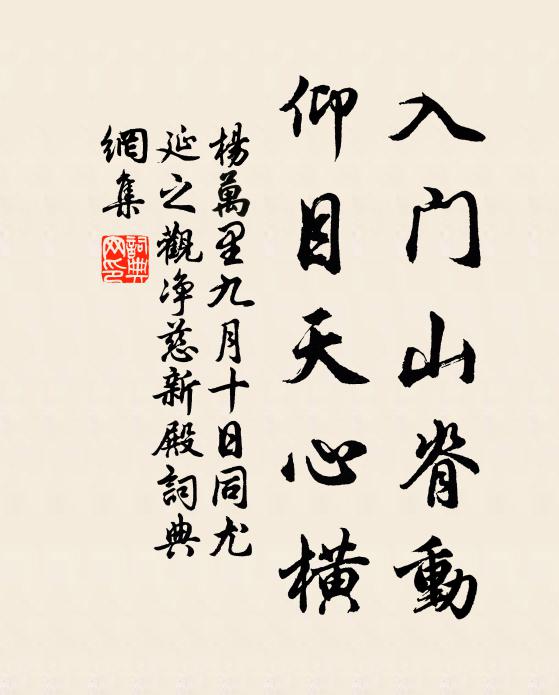 入门山脊動
仰目天心橫
楊萬里九月十日同尤
延之觀净慈新殿詞典
網集
詞典
网印